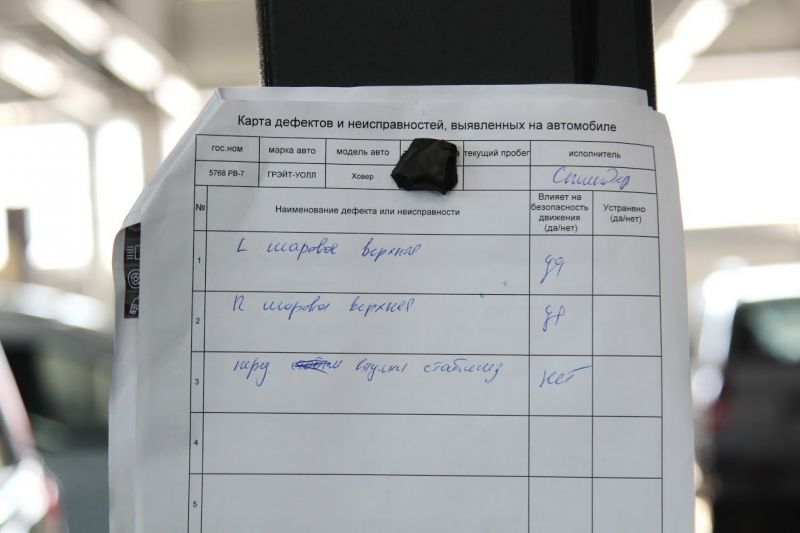 Карта дефектов и неисправностей, выявленных на автомобиле
гос.ном марка авто модель авто текущий пробег исполнитель
5768 РВ-7 ГРЭЙТ-УОЛЛ Ховер
№ Наименование дефекта или неисправности Влияет на безопасность движения (да/нет) Устранено (да/нет)
1 L шаровая верхняя да
2 R шаровая верхняя да
3 перд втулки стабилиз нет
4
5